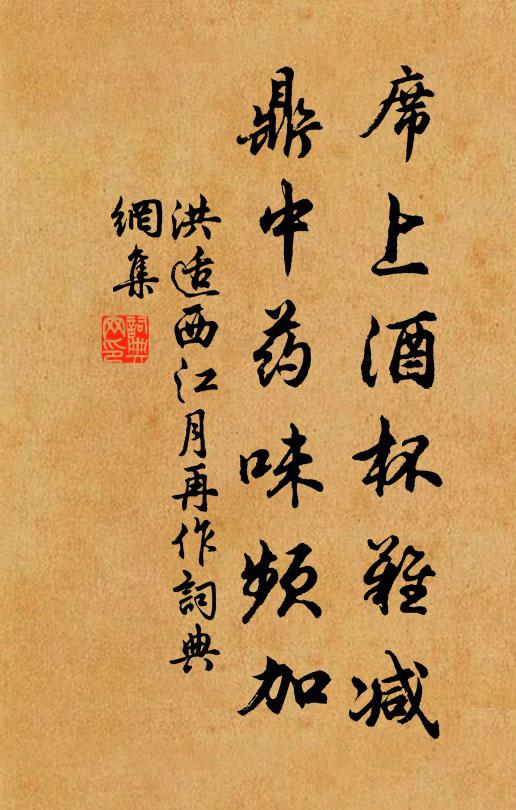 席上酒杯难减
鼎中药味频加
洪适西江月再作詞典
網集
詞典
网印